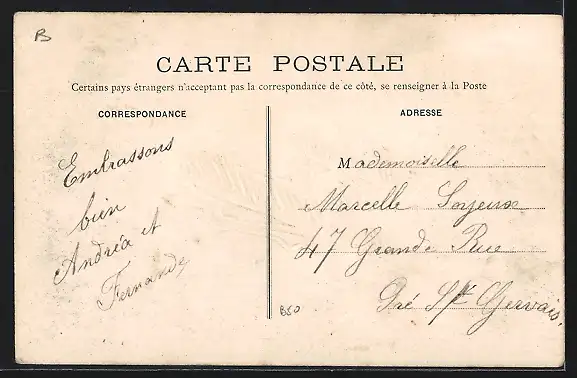 B
CARTE POSTALE
Certains pays étrangers n'acceptant pas la correspondance de ce côté, se renseigner à la Poste
CORRESPONDANCE
Embrassons
bien
Andréa et
Fernande
ADRESSE
Mademoiselle
Marcelle Soyeux
47 Grande Rue
Pré St Gervais.
B50